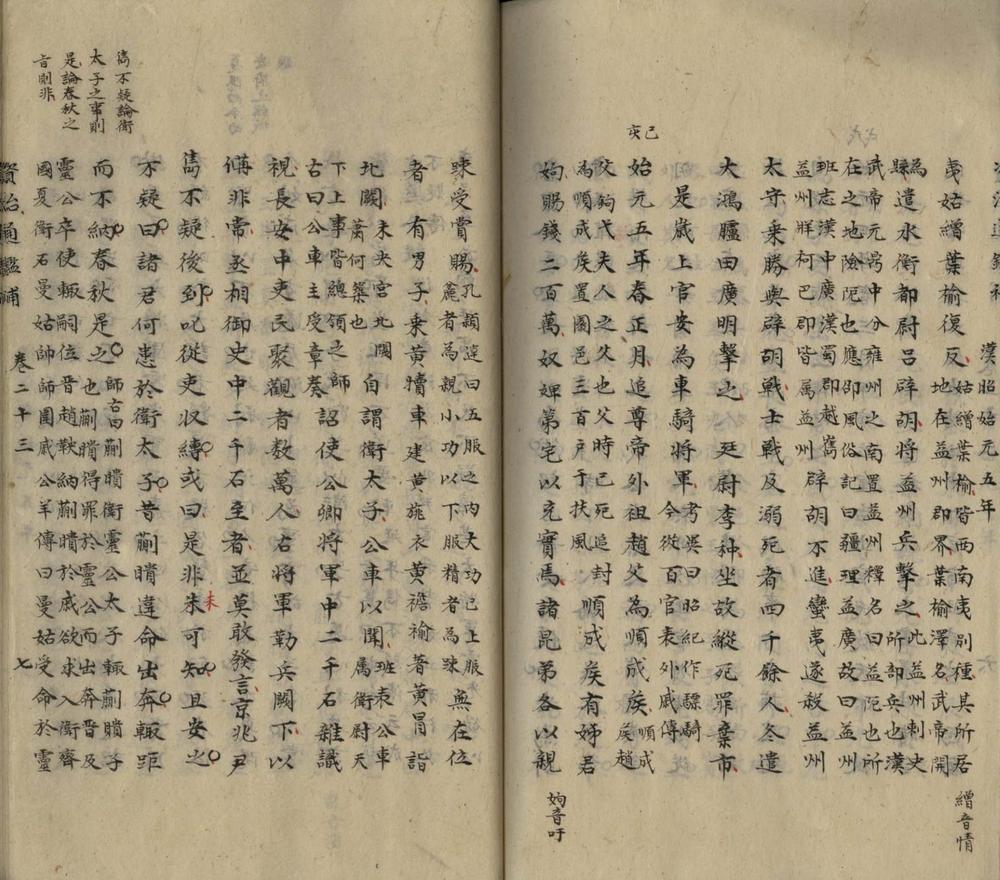 漢昭始元五年
夷姑繒葉榆復反
姑繒葉榆皆西南夷別種其所居
地在益州郡界葉榆澤名武帝開
為
縣
遣水衡都尉呂辟胡將益州兵擊之
此益州刺史
所部兵也漢
武帝元封中分雍州之南置益州釋名曰益阨也所
在之地險阨也應邵風俗記曰疆理益廣故曰益州
班志漢中廣漢蜀郡越嶲
益州牂柯巴郡皆属益州
辟胡不進蠻夷遂殺益州
太守乘勝與辟胡戰士戰及溺死者四千餘人冬遣
大鴻臚田廣明擊之 廷尉李种坐故縱死罪棄市
是歲上官安為車騎將軍
考異曰昭紀作驃騎
今從百官表外戚傳
始元五年春正月追尊帝外祖趙父為順成侯
順成
侯趙
父鉤弋夫人之父也父時已死追封
為順成侯置園邑三百戶于扶風
順成侯有姊君
姁賜錢二百萬奴婢第宅以充實焉諸昆弟各以親
繒音情
己亥
姁音吁
疎受賞賜
孔穎達曰五服之內大功已上服
麄者為親小功以下服精者為疎
無在位
者 有男子乘黃犢車建黃旐衣黃襜褕著黃冒詣
北闕
未央宮北闕
蕭何築也
自謂衛太子公車以聞
班表公車
属衛尉天
下上事皆總領之師
古曰公車主受章奏
詔使公卿將軍中二千石雜識
視長安中吏民聚觀者數萬人右將軍勒兵闕下以
備非常丞相御史中二千石至者並莫敢發言京兆尹
雋不疑後到叱從吏收縛或曰是非未可知且安之
未
不疑曰諸君何患於衛太子昔蒯聵違命出奔輒距
而不納春秋是之
師古曰蒯聵衛靈公太子輒蒯聵子
也蒯聵得罪於靈公而出奔晉及
靈公卒使輒嗣位晉趙鞅納蒯聵於戚欲求入衛齊
國夏衛石曼姑帥師圍戚公羊傳曰曼姑受命於靈
雋不疑論衛
太子之事則
是論春秋之
言則非
資治通鑑補 卷二十三 七